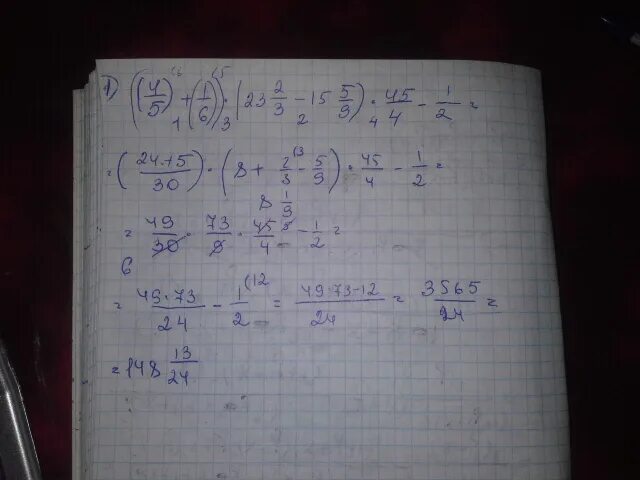 1) ((4/5)^(6 + (1/6)^(5) · (23 2/3 − 15 5/9) · 45/4 − 1/2 =
1 3 2 4
= (24+5/30) · (8 + 2/3^(3 − 5/9) · 45/4 − 1/2 =
8 1/9
= 49/30 · 73/9 · 45/4 5 − 1/2 =
6
= 49·73/24 − 1/2 (12 = 49·73−12/24 = 3565/24 =
= 148 13/24